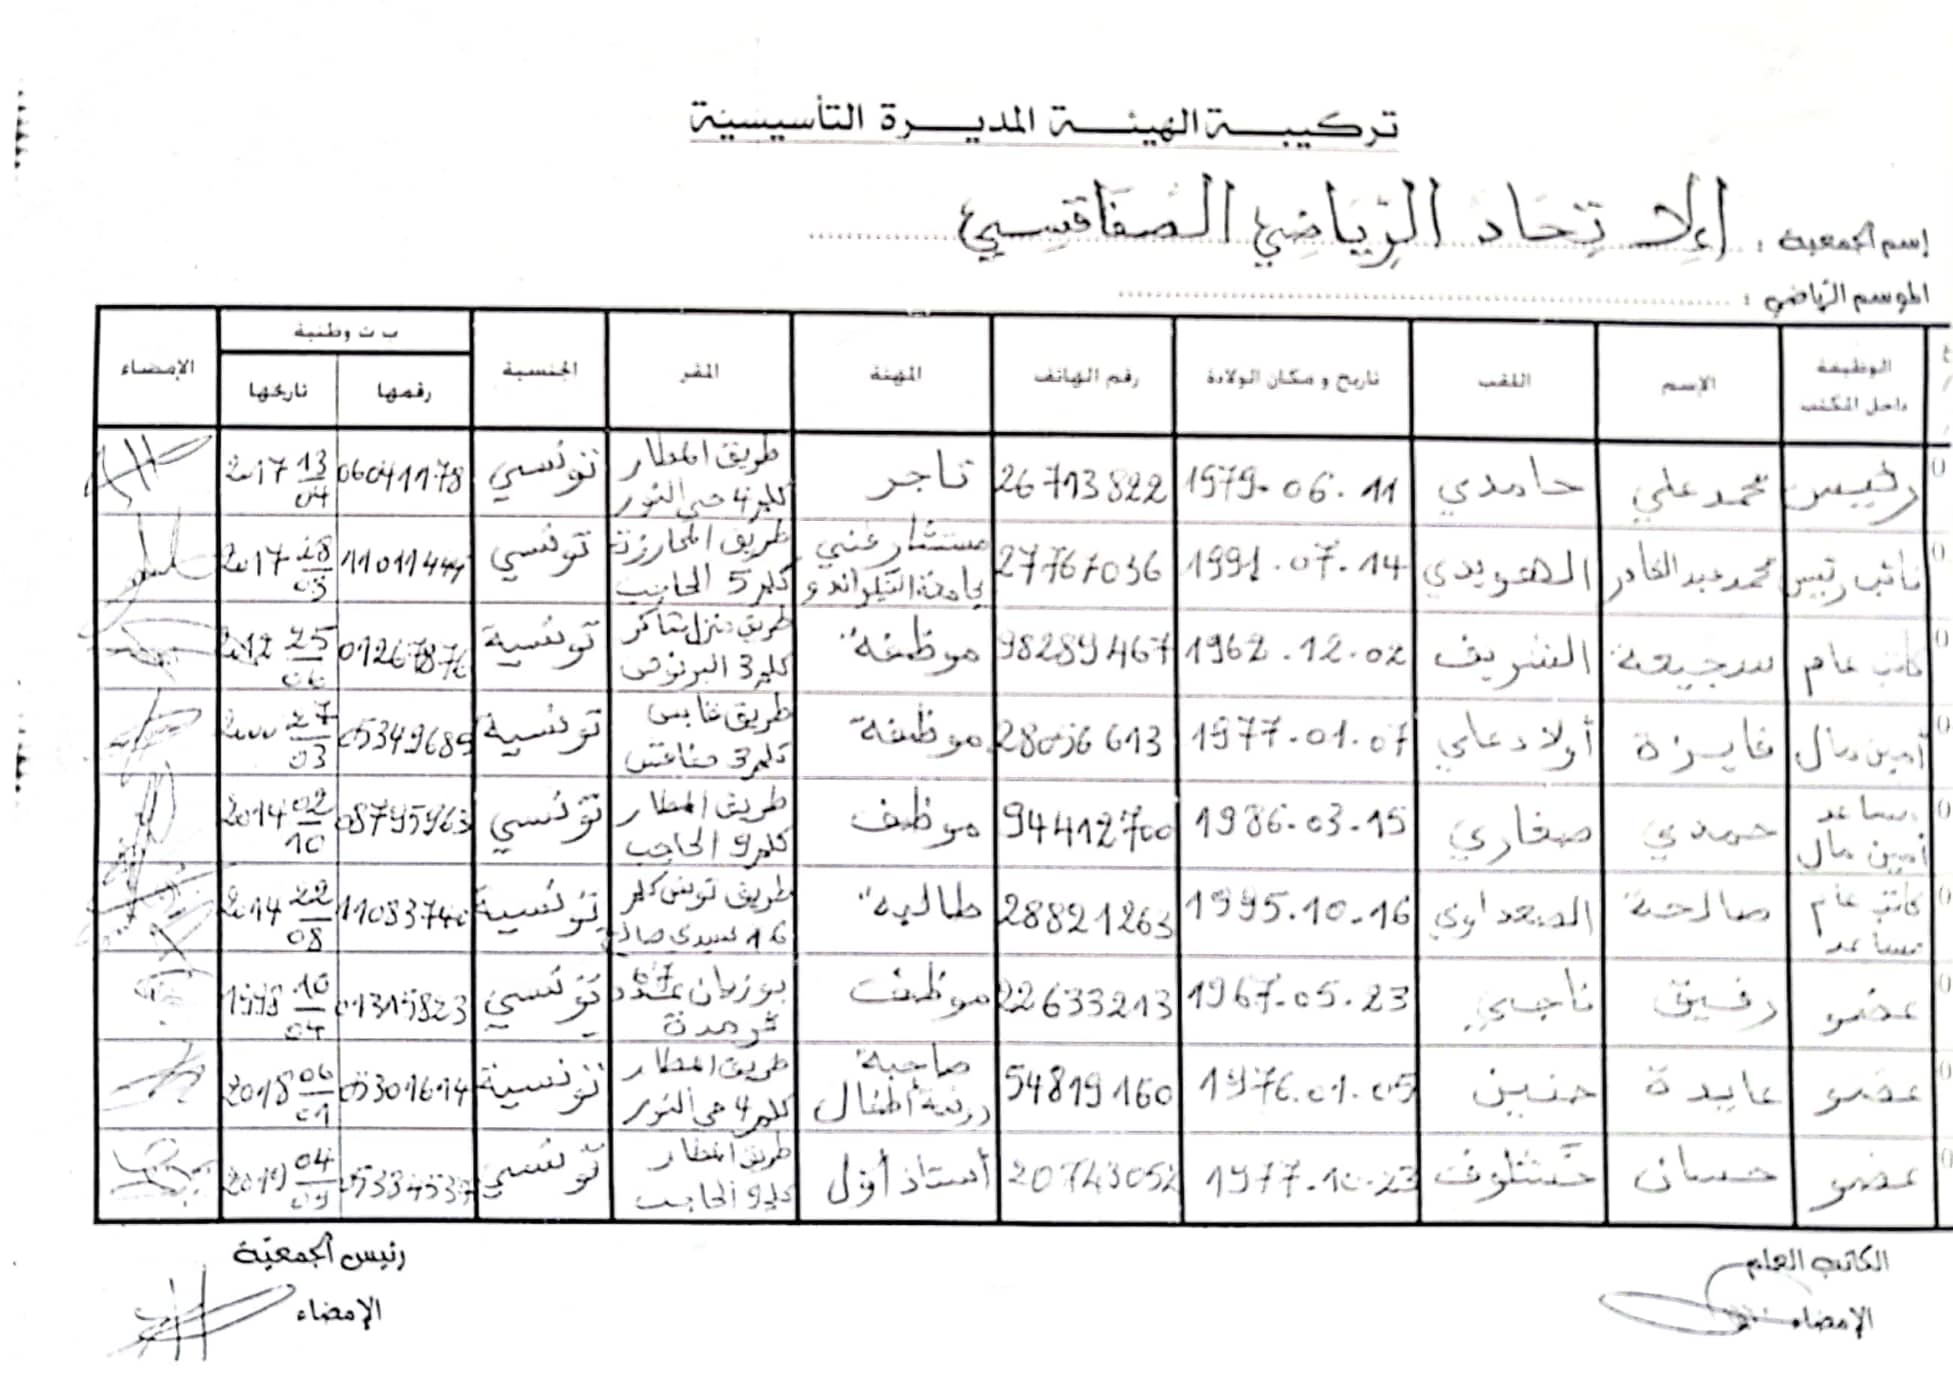 تركيبة الهيئة المديرة التأسيسية
إسم الجمعية : الإتِّحَاد الرِّيَاضِي الصَّفَاقسِي
الموسم الرياضي :
الوظيفة داخل المكتب الإسم اللقب تاريخ و مكان الولادة رقم الهاتف المهنة المقر الجنسية ب ت وطنية رقمها تاريخها الإمضاء
رئيس محمد علي حامدي 1979.06.11 26713822 تاجر طريق المطار كلم 4 حي النور تونسي 06041178 13/04 2017
نائب رئيس محمد عبد القادر الهويدي 1991.07.14 27767036 مستشار فني بجامعة التيكواندو طريق المحارزة كلم 5 تونسي 2017
كاتب عام الشريف 1962.12.02 98289467 موظفة طريق منزل شاكر كلم 3 تونسية 01267876 2012
أمين مال فايزة أولاد علي 1977.01.07 موظفة طريق قابس كلم 3 صفاقس تونسية 05349689 27/03 2000
مساعد أمين مال حمدي صفاري 1986.03.15 94412700 موظف طريق المطار كلم 9 الحاجب تونسي 08795963 02/10 2014
كاتب عام مساعد صالحة الصعداوي 1995.10.16 28821263 طالبة طريق تونس كلم 16 سيدي صالح تونسية 11083740 22/08 2014
عضو رفيق ناجي 1967.05.23 22633213 موظف تونسي 01315823 10/04 1998
عضو عايدة حنين 1976.01.05 54819160 صاحبة روضة أطفال طريق المطار كلم 4 حي النور تونسية 05301614 06/01 2018
عضو حسان خشلوف 1977.10.23 20743052 أستاذ أول طريق المطار كلم 9 الحاجب تونسي 05334537 04/09 2019
الكاتب العام رئيس الجمعية
الإمضاء الإمضاء